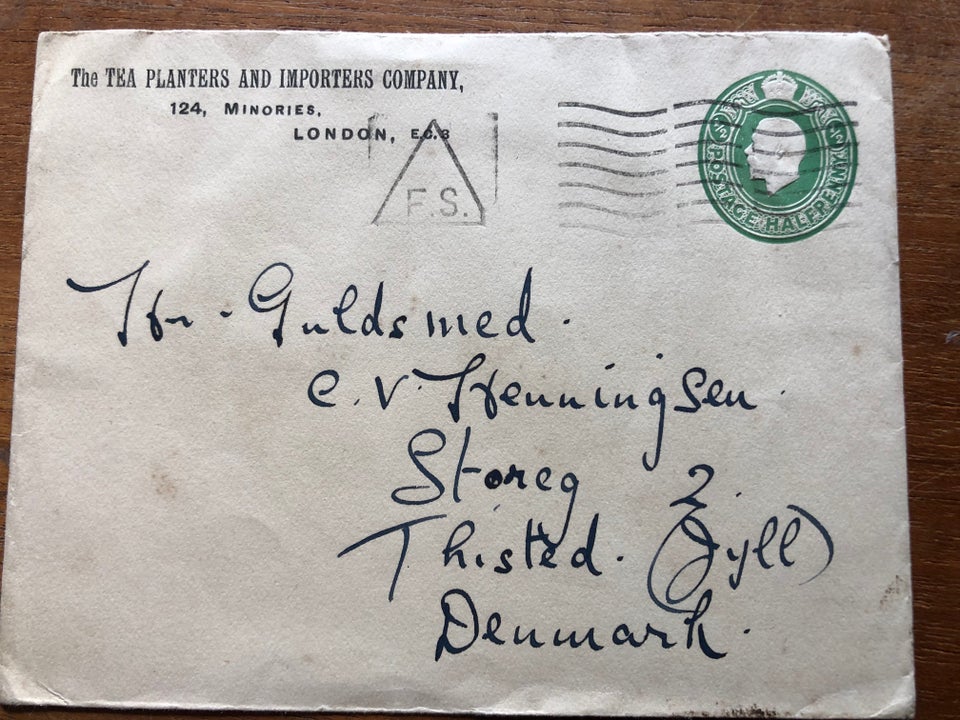 The TEA PLANTERS AND IMPORTERS COMPANY,
124, MINORIES,
LONDON, E.C.3
F.S.
POSTAGE HALFPENNY
Hr. Guldsmed.
C. V. Henningsen.
Storeg 2
Thisted. (Jyll)
Denmark.